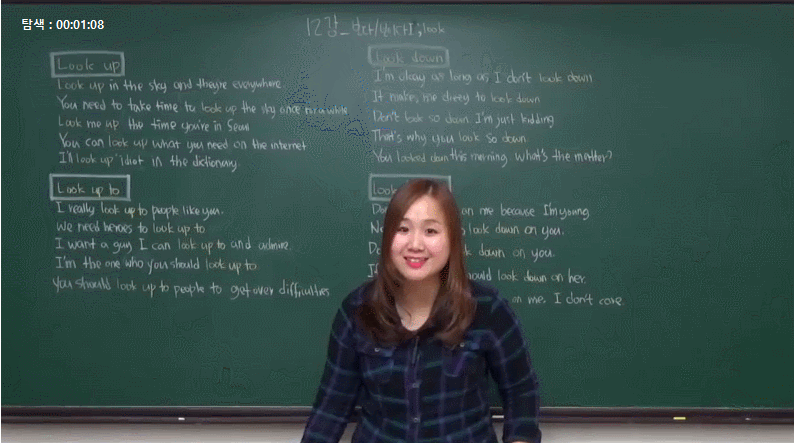 탐색 : 00:01:08
12강_
; look
Look up
Look up in the sky and they're everywhere
You need to take time to look up the sky once in a while
Look me up the time you're in Seoul
You can look up what you need on the internet
I'll look up 'Idiot' in the dictionary.
Look up to
I really look up to people like you.
We need heroes to look up to
I want a guy I can look up to and admire.
I'm the one who you should look up to
You should look up to people to get over difficulties
Look down
I'm okay as long as I don't look down
It makes me dizzy to look down
Don't look so down I'm just kidding
That's why you look so down
You looked down this morning. What's the matter?
look
on me because I'm young
look down on you.
look down on you.
should look down on her.
on me, I don't care.